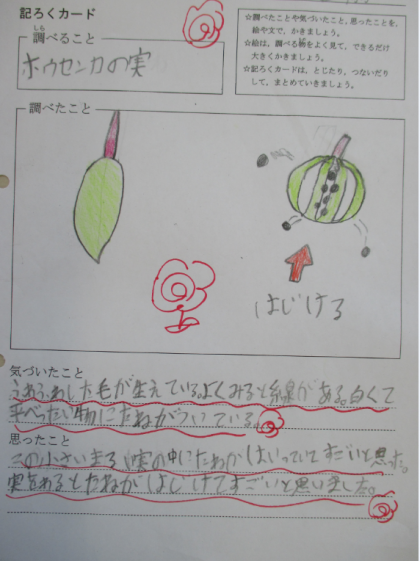 記ろくカード
☆調べたことや気づいたこと、思ったことを、
絵や文で、かきましょう。
☆絵は、調べる物をよく見て、できるだけ
大きくかきましょう。
☆記ろくカードは、とじたり、つないだり
して、まとめていきましょう。
しら
調べること
ホウセンカの実
調べたこと
はじける
気づいたこと
ふわふわした毛が生えている。よくみると線がある。白くて
平べったい物にたねがついている。
思ったこと
この小さいまるい実の中にたねがはいっていてすごいと思った。
実をあるとたねがはじけてすごいと思いました。